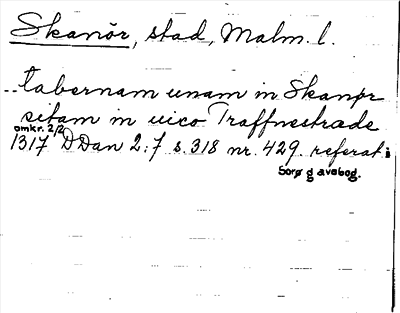 Skanör, stad, Malm. l.
..tabernam unam in Skanør
sitam in uico Traffnestrade
omkr. 2/2
1317 DDan 2:7 s. 318 nr. 429. referat i
Sorø gavebog.